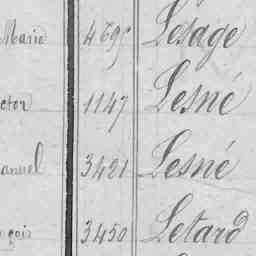 Marie 4695 Lesage
ctor 1147 Lesné
anuel 3421 Lesné
çois 3450 Letard